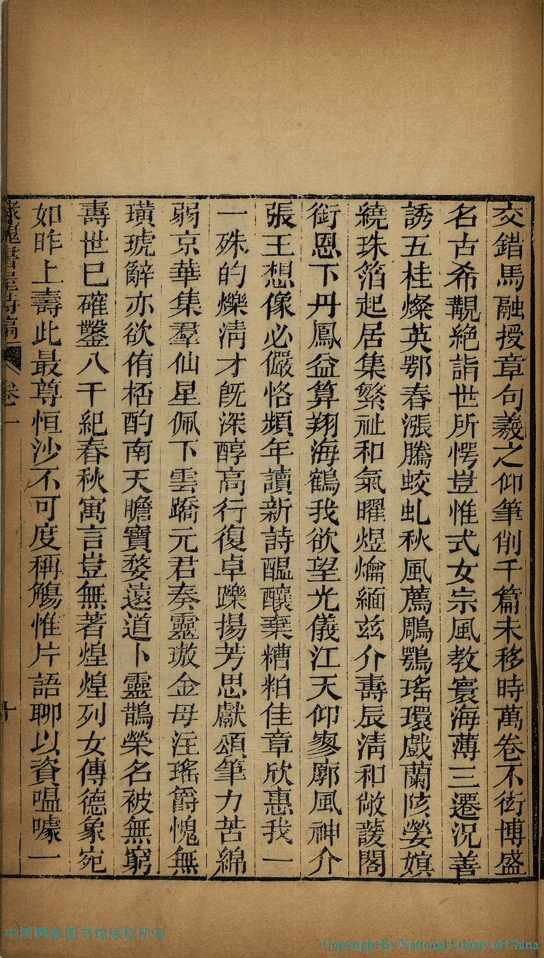 交錯馬融授章句羲之仰筆削千篇未移時萬卷不衒博盛
名古希覯絕詣世所愕豈惟式女宗風教寰海薄三遷況善
誘五桂燦英鄂春漲騰蛟虬秋風薦鵰鶚瑤環戲蘭陔嫈嫇
繞珠箔起居集繁祉和氣曜煜爚緬茲介壽辰淸和敞蓤閣
銜恩下丹鳳益算翔海鶴我欲望光儀江天仰寥廓風神介
張王想像必儼恪頻年讀新詩醞釀棄糟粕佳章欣惠我一
一殊的爍淸才旣深醇高行復卓躒揚芳思獻頌筆力苦綿
弱京華集羣仙星佩下雲蹻元君奏靈璈金母注瑤爵愧無
璜琥辭亦欲侑桮酌南天瞻寶婺遠道卜靈鵲榮名被無窮
壽世巳確鑿八千紀春秋寓言豈無著煌煌列女傳德象宛
如昨上壽此最尊恒沙不可度稱觴惟片語聊以資嗢噱一
卷一
十
中国国家图书馆版权所有
Copyright By National Library of China